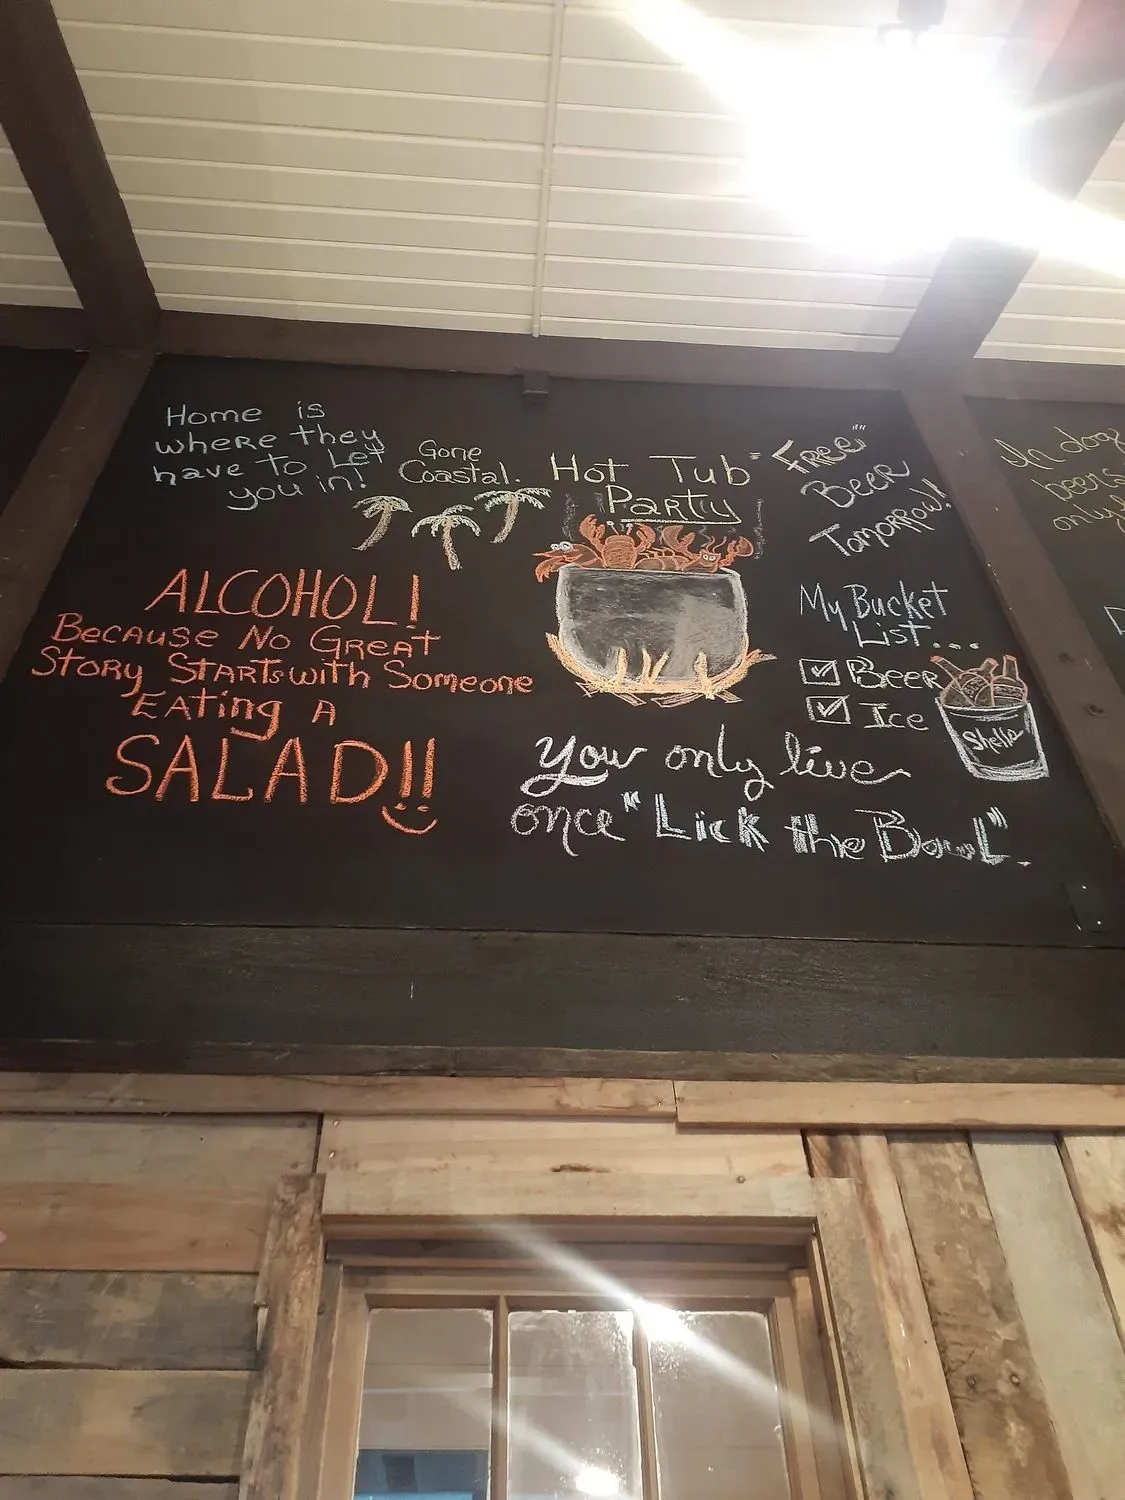 Home is
where they
have to Let
you in!
Gone
Coastal.
Hot Tub
Party
"FREE"
BEER
Tomorrow!
ALCOHOL!
BECAUSE NO GREAT
STORY STARTS with Someone
EATing A
SALAD!!
My Bucket
List....
Beer
Ice
Shells
You only live
once "Lick the Bowl".
In dog
beers
only